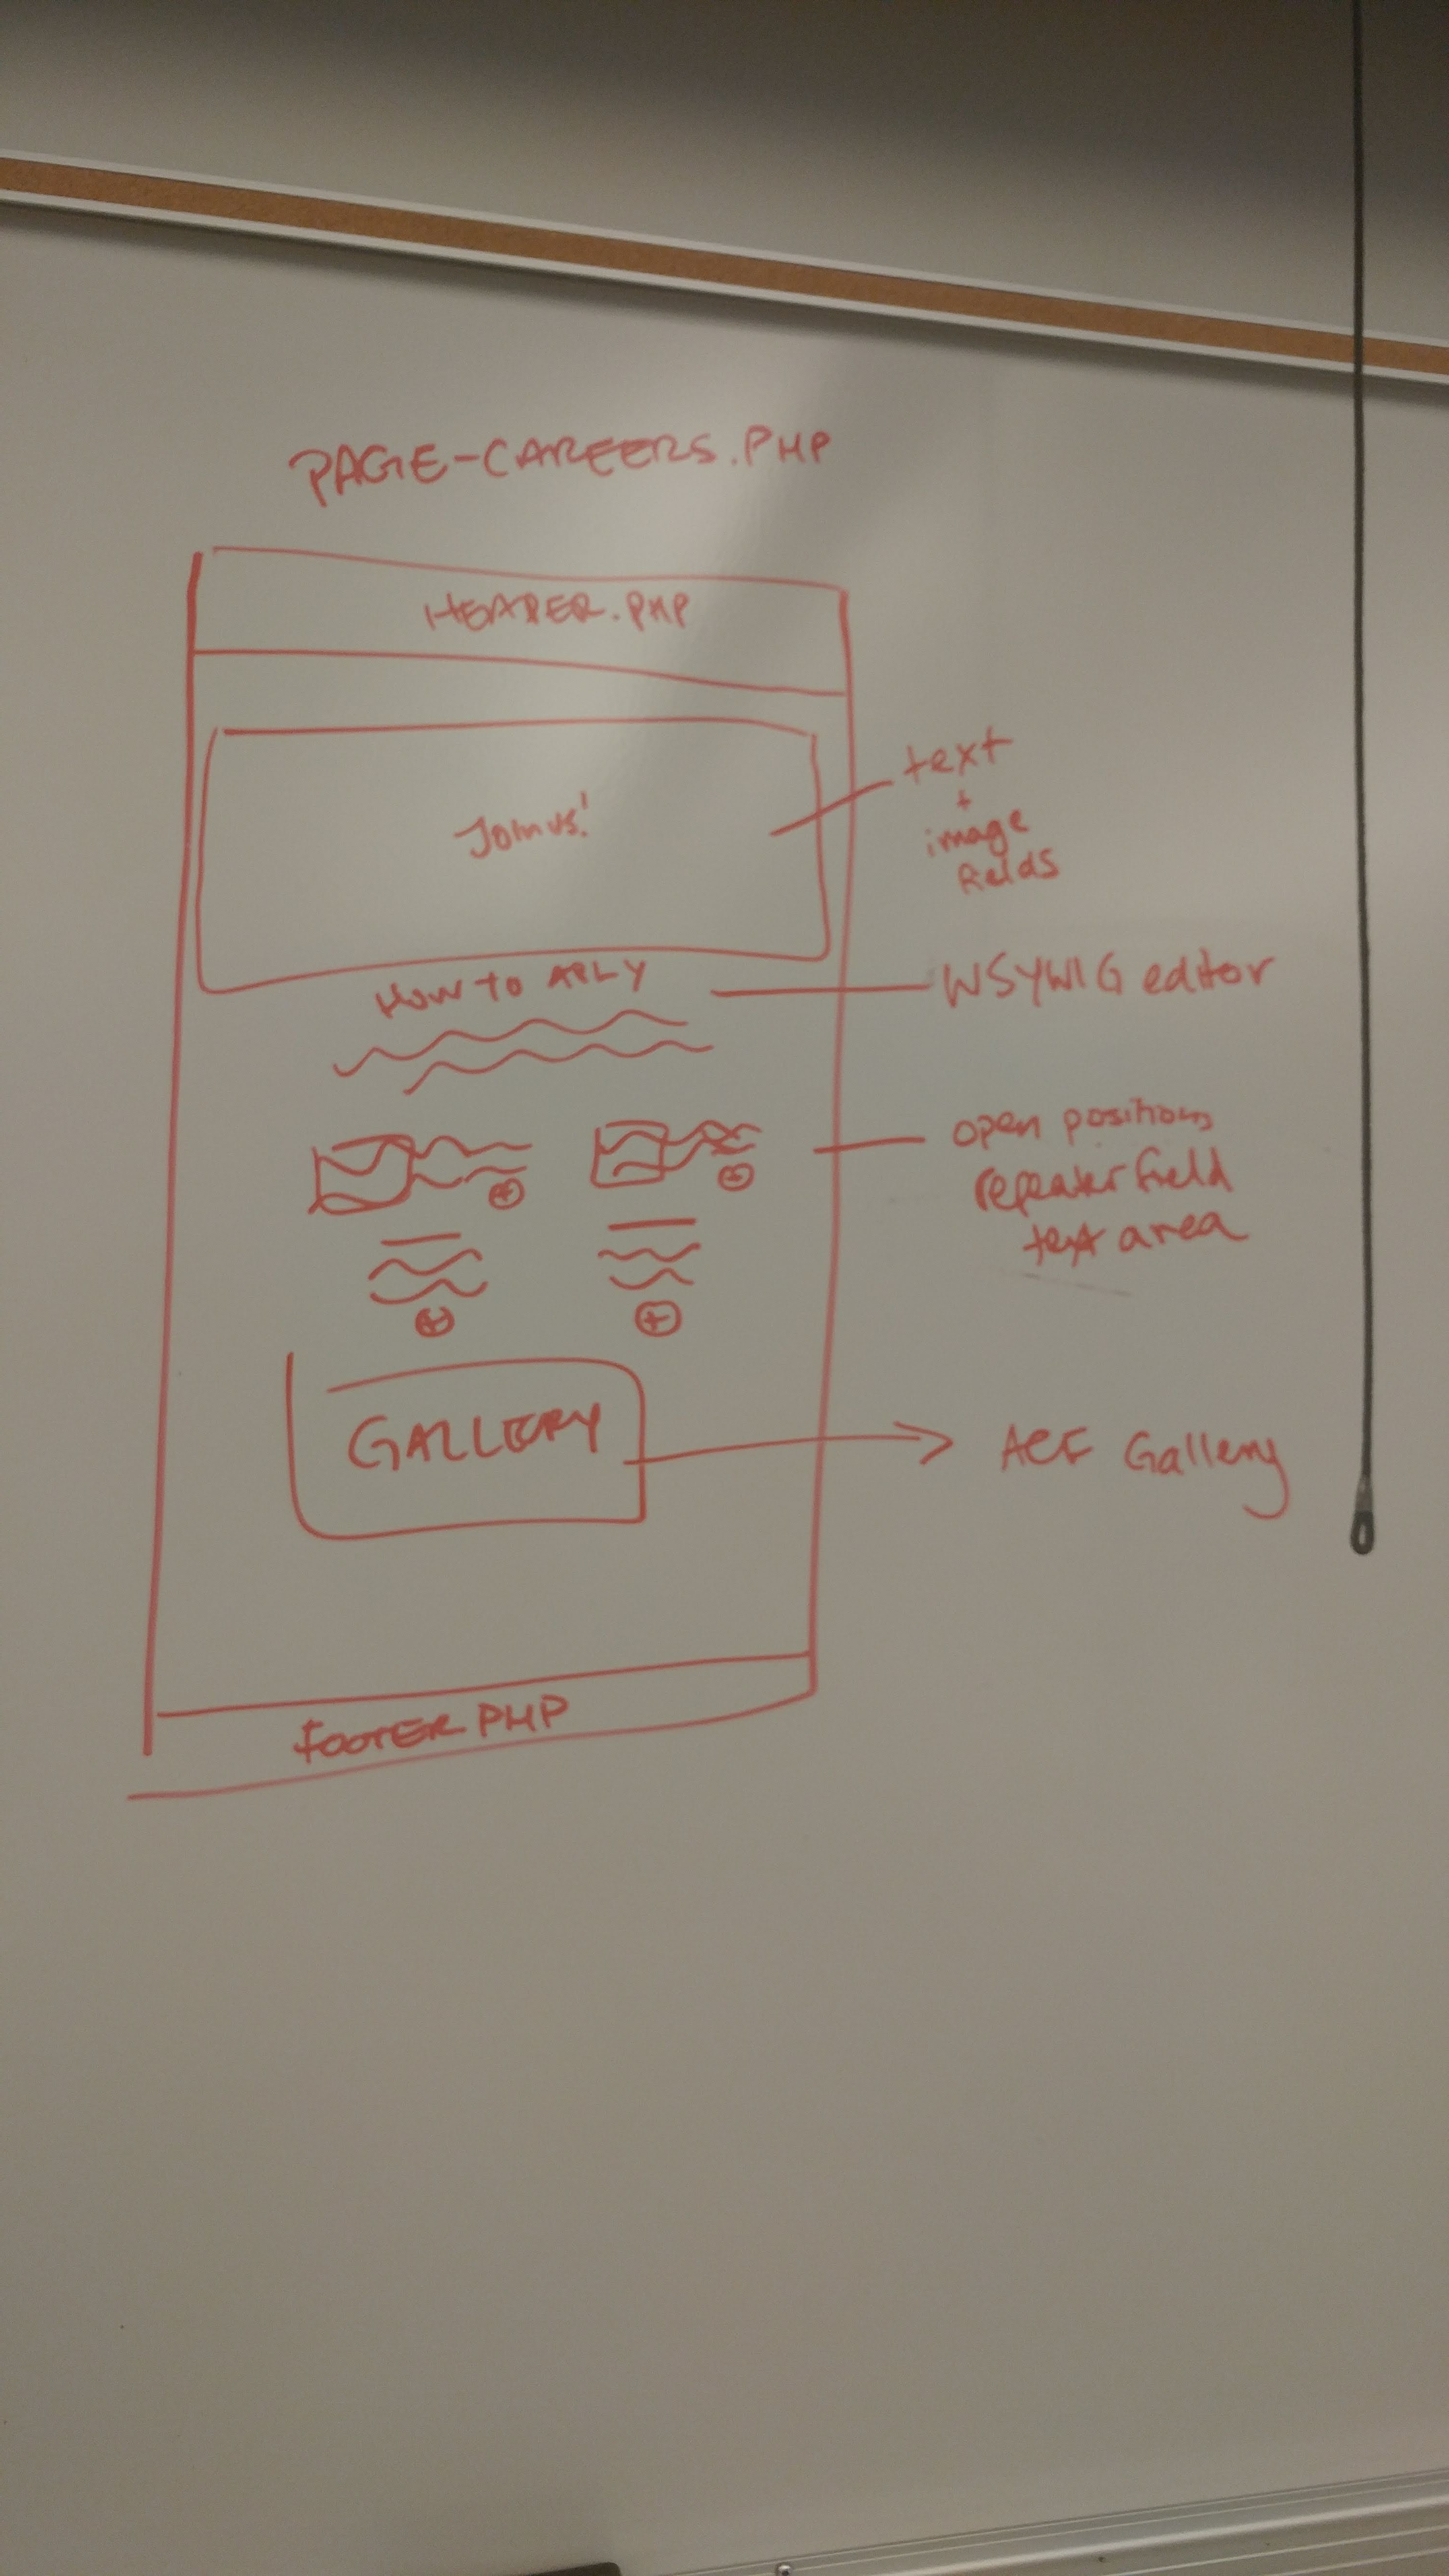 PAGE-CAREERS.PHP
HEADER.PHP
Join us!
text
+
image
fields
HOW TO APLY
WSYWIG editor
open positions
repeater field
text area
GALLERY
ACF Gallery
FOOTER PHP